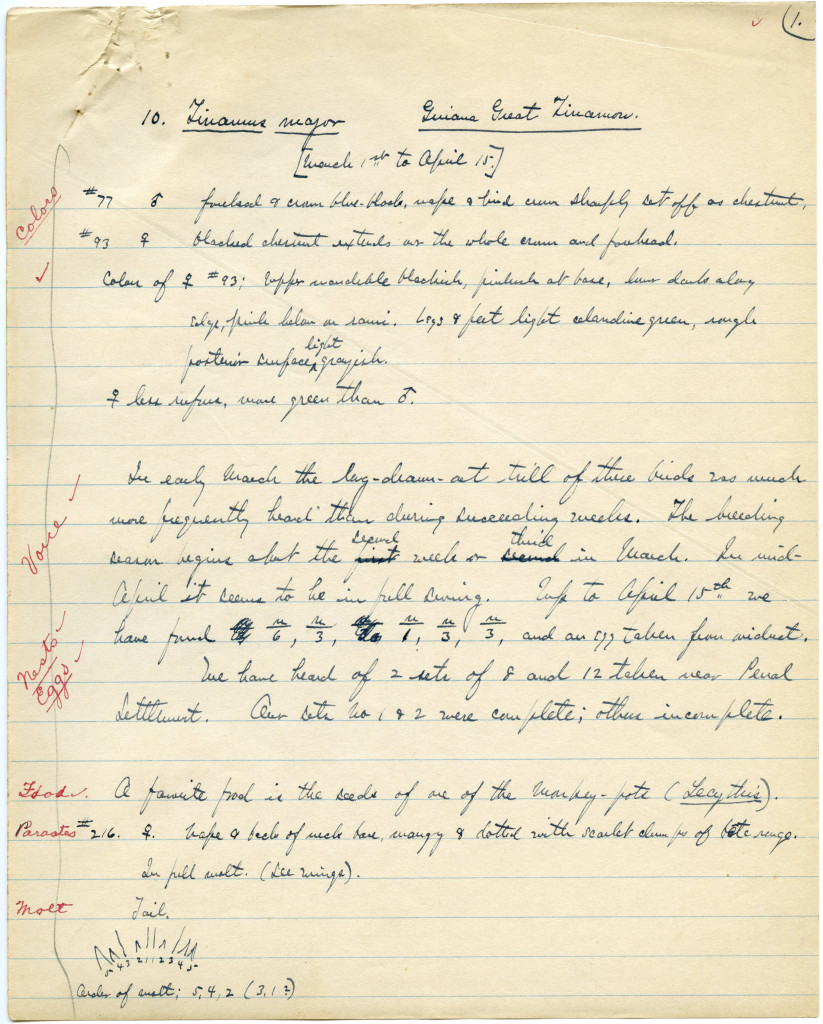 (1.
10. Tinamus major Guiana Great Tinamou.
[March 1st to April 15.]
Colors
#77 ♂ forehead & crown blue-black, nape & hind crown sharply set off as chestnut.
#93 ♀ blacked chestnut extends over the whole crown and forehead.
Color of ♀ #93; Upper mandible blackish, pinkish at base, lower dark along
edge, pink below on rami. Legs & feet light celandine green, rough
posterior surface light grayish.
♀ less rufus, more green than ♂.
Voice
In early March the long-drawn-out trill of these birds was much
more frequently heard than during succeeding weeks. The breeding
season begins about the first second week or second third in March. In mid-
April it seems to be in full swing. Up to April 15th we
Nests
Eggs
have found n/6, n/3, n/1, n/3, n/3, and an egg taken from oviduct.
We have heard of 2 sets of 8 and 12 taken near Penal
Settlement. Our sets No 1 & 2 were complete; others incomplete.
Food A favorite food is the seeds of one of the Monkey-pots (Lecythis).
Parasites #216. ♀. Nape & back of neck bare, mangy & dotted with scarlet clumps of bête rouge.
In full molt. (See wings).
Molt Tail.
5 4 3 2 1 1 2 3 4 5
Order of molt; 5, 4, 2 (3, 1 ?)